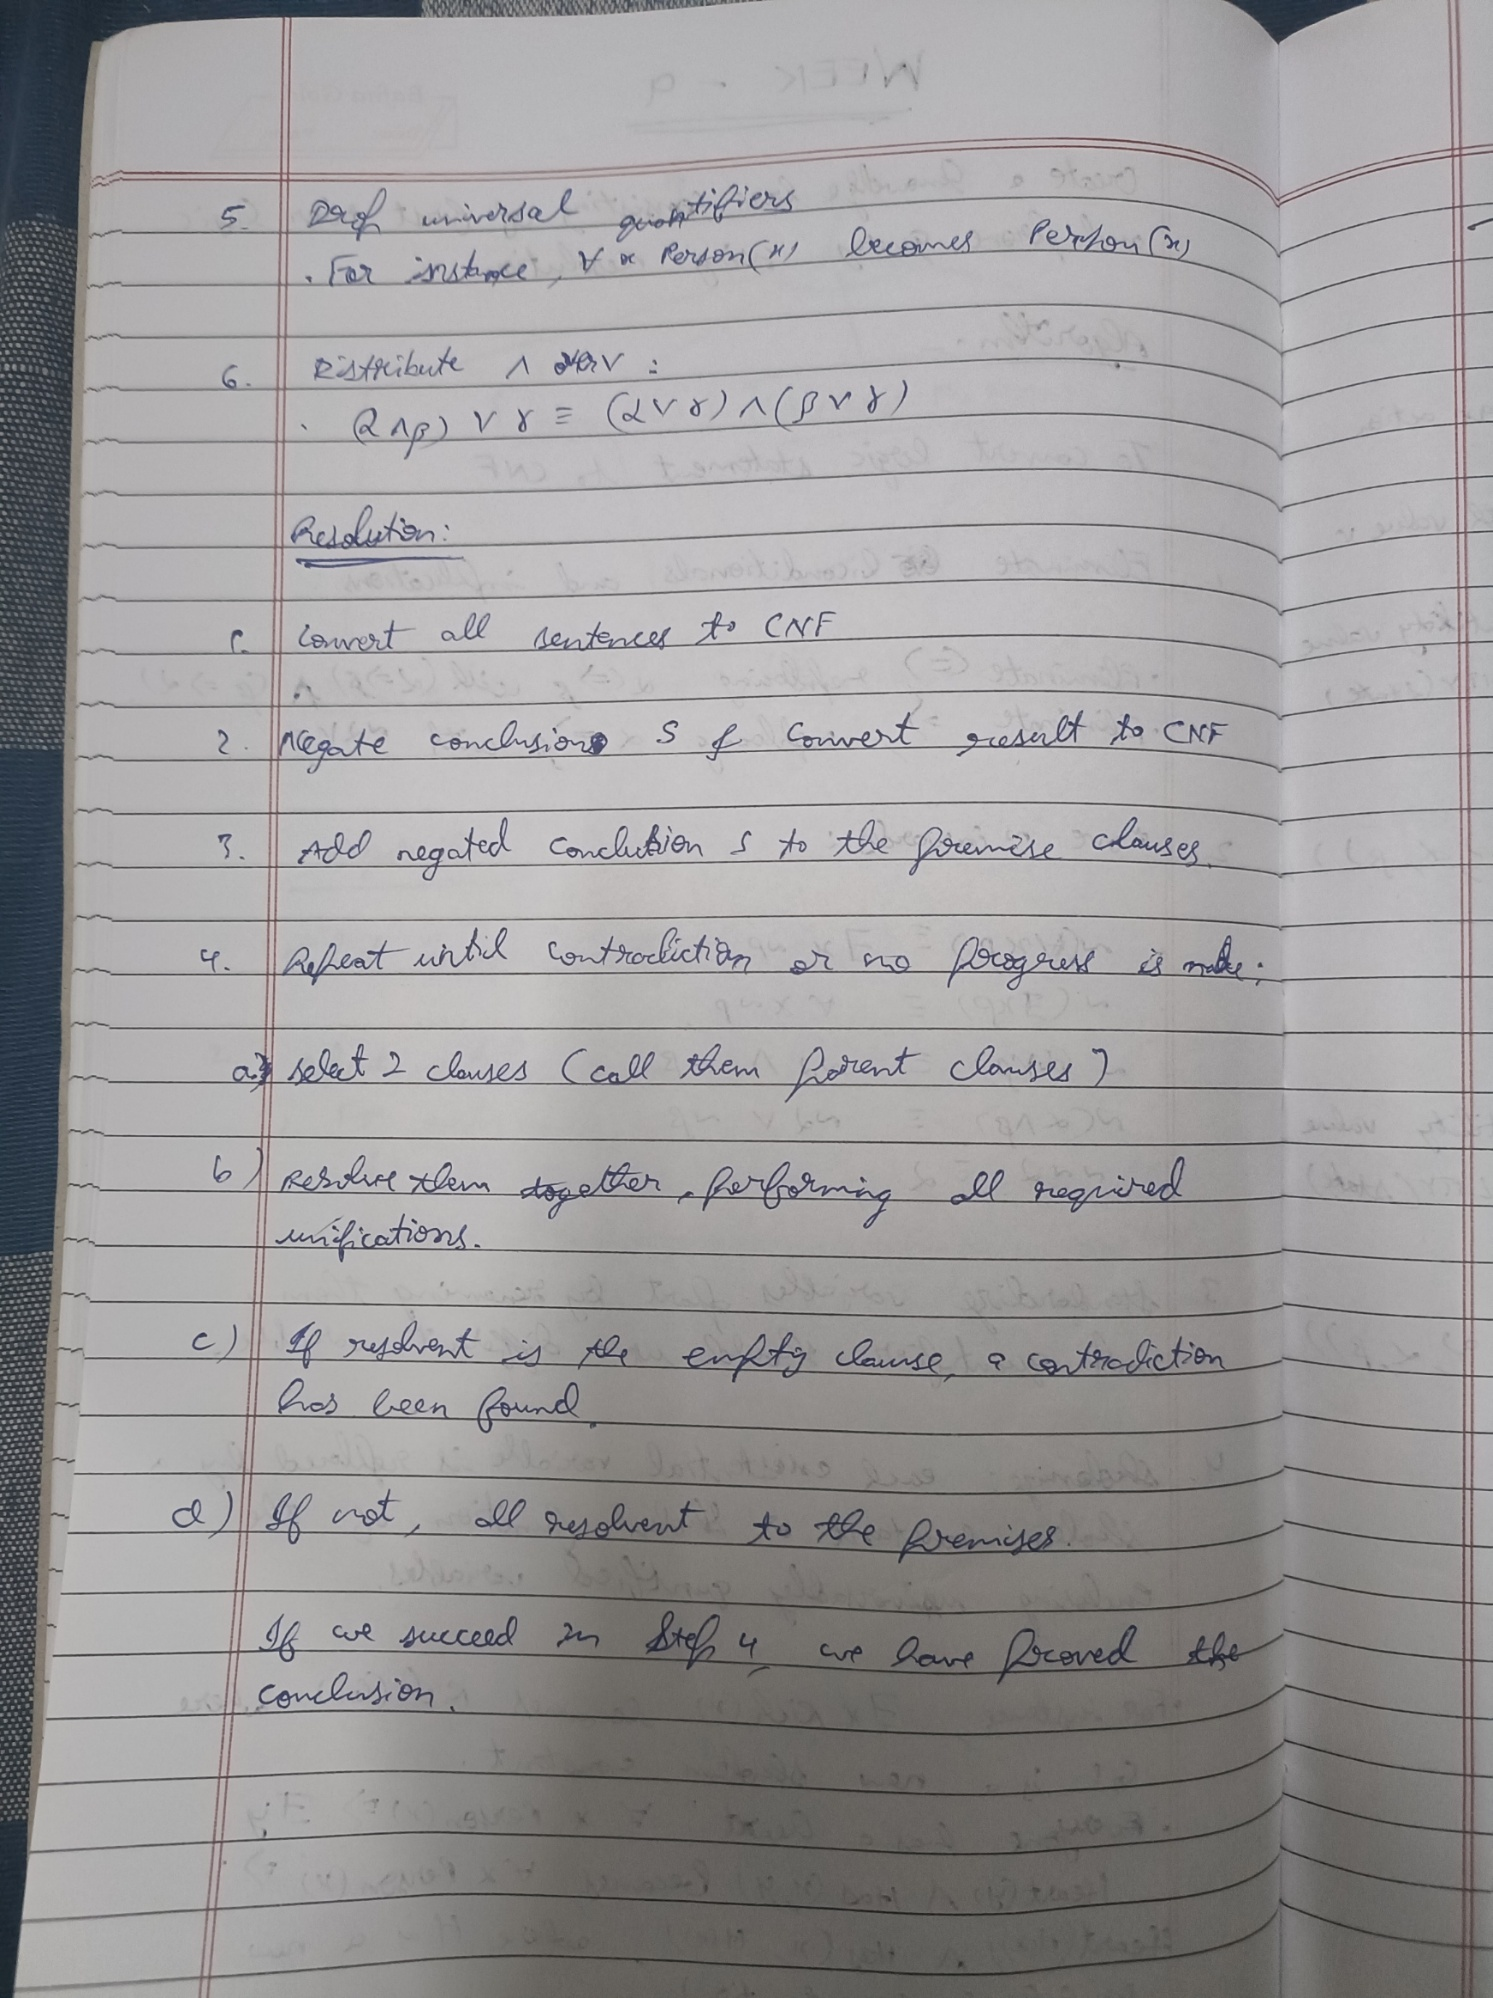 5. Drop universal quantifiers
. For instance, ∀ x Person(x) becomes Person(x)
6. Distribute ∧ over ∨ :
. (α ∧ β) ∨ γ ≡ (α ∨ γ) ∧ (β ∨ γ)
Resolution:
1. Convert all sentences to CNF
2. Negate conclusion S & convert result to CNF
3. Add negated conclusion S to the premise clauses.
4. Repeat until contradiction or no progress is made:
a) select 2 clauses (call them parent clauses)
b) Resolve them together, performing all required
unifications.
c) If resolvent is the empty clause, a contradiction
has been found.
d) If not, all resolvent to the premises.
If we succeed in Step 4, we have proved the
conclusion.